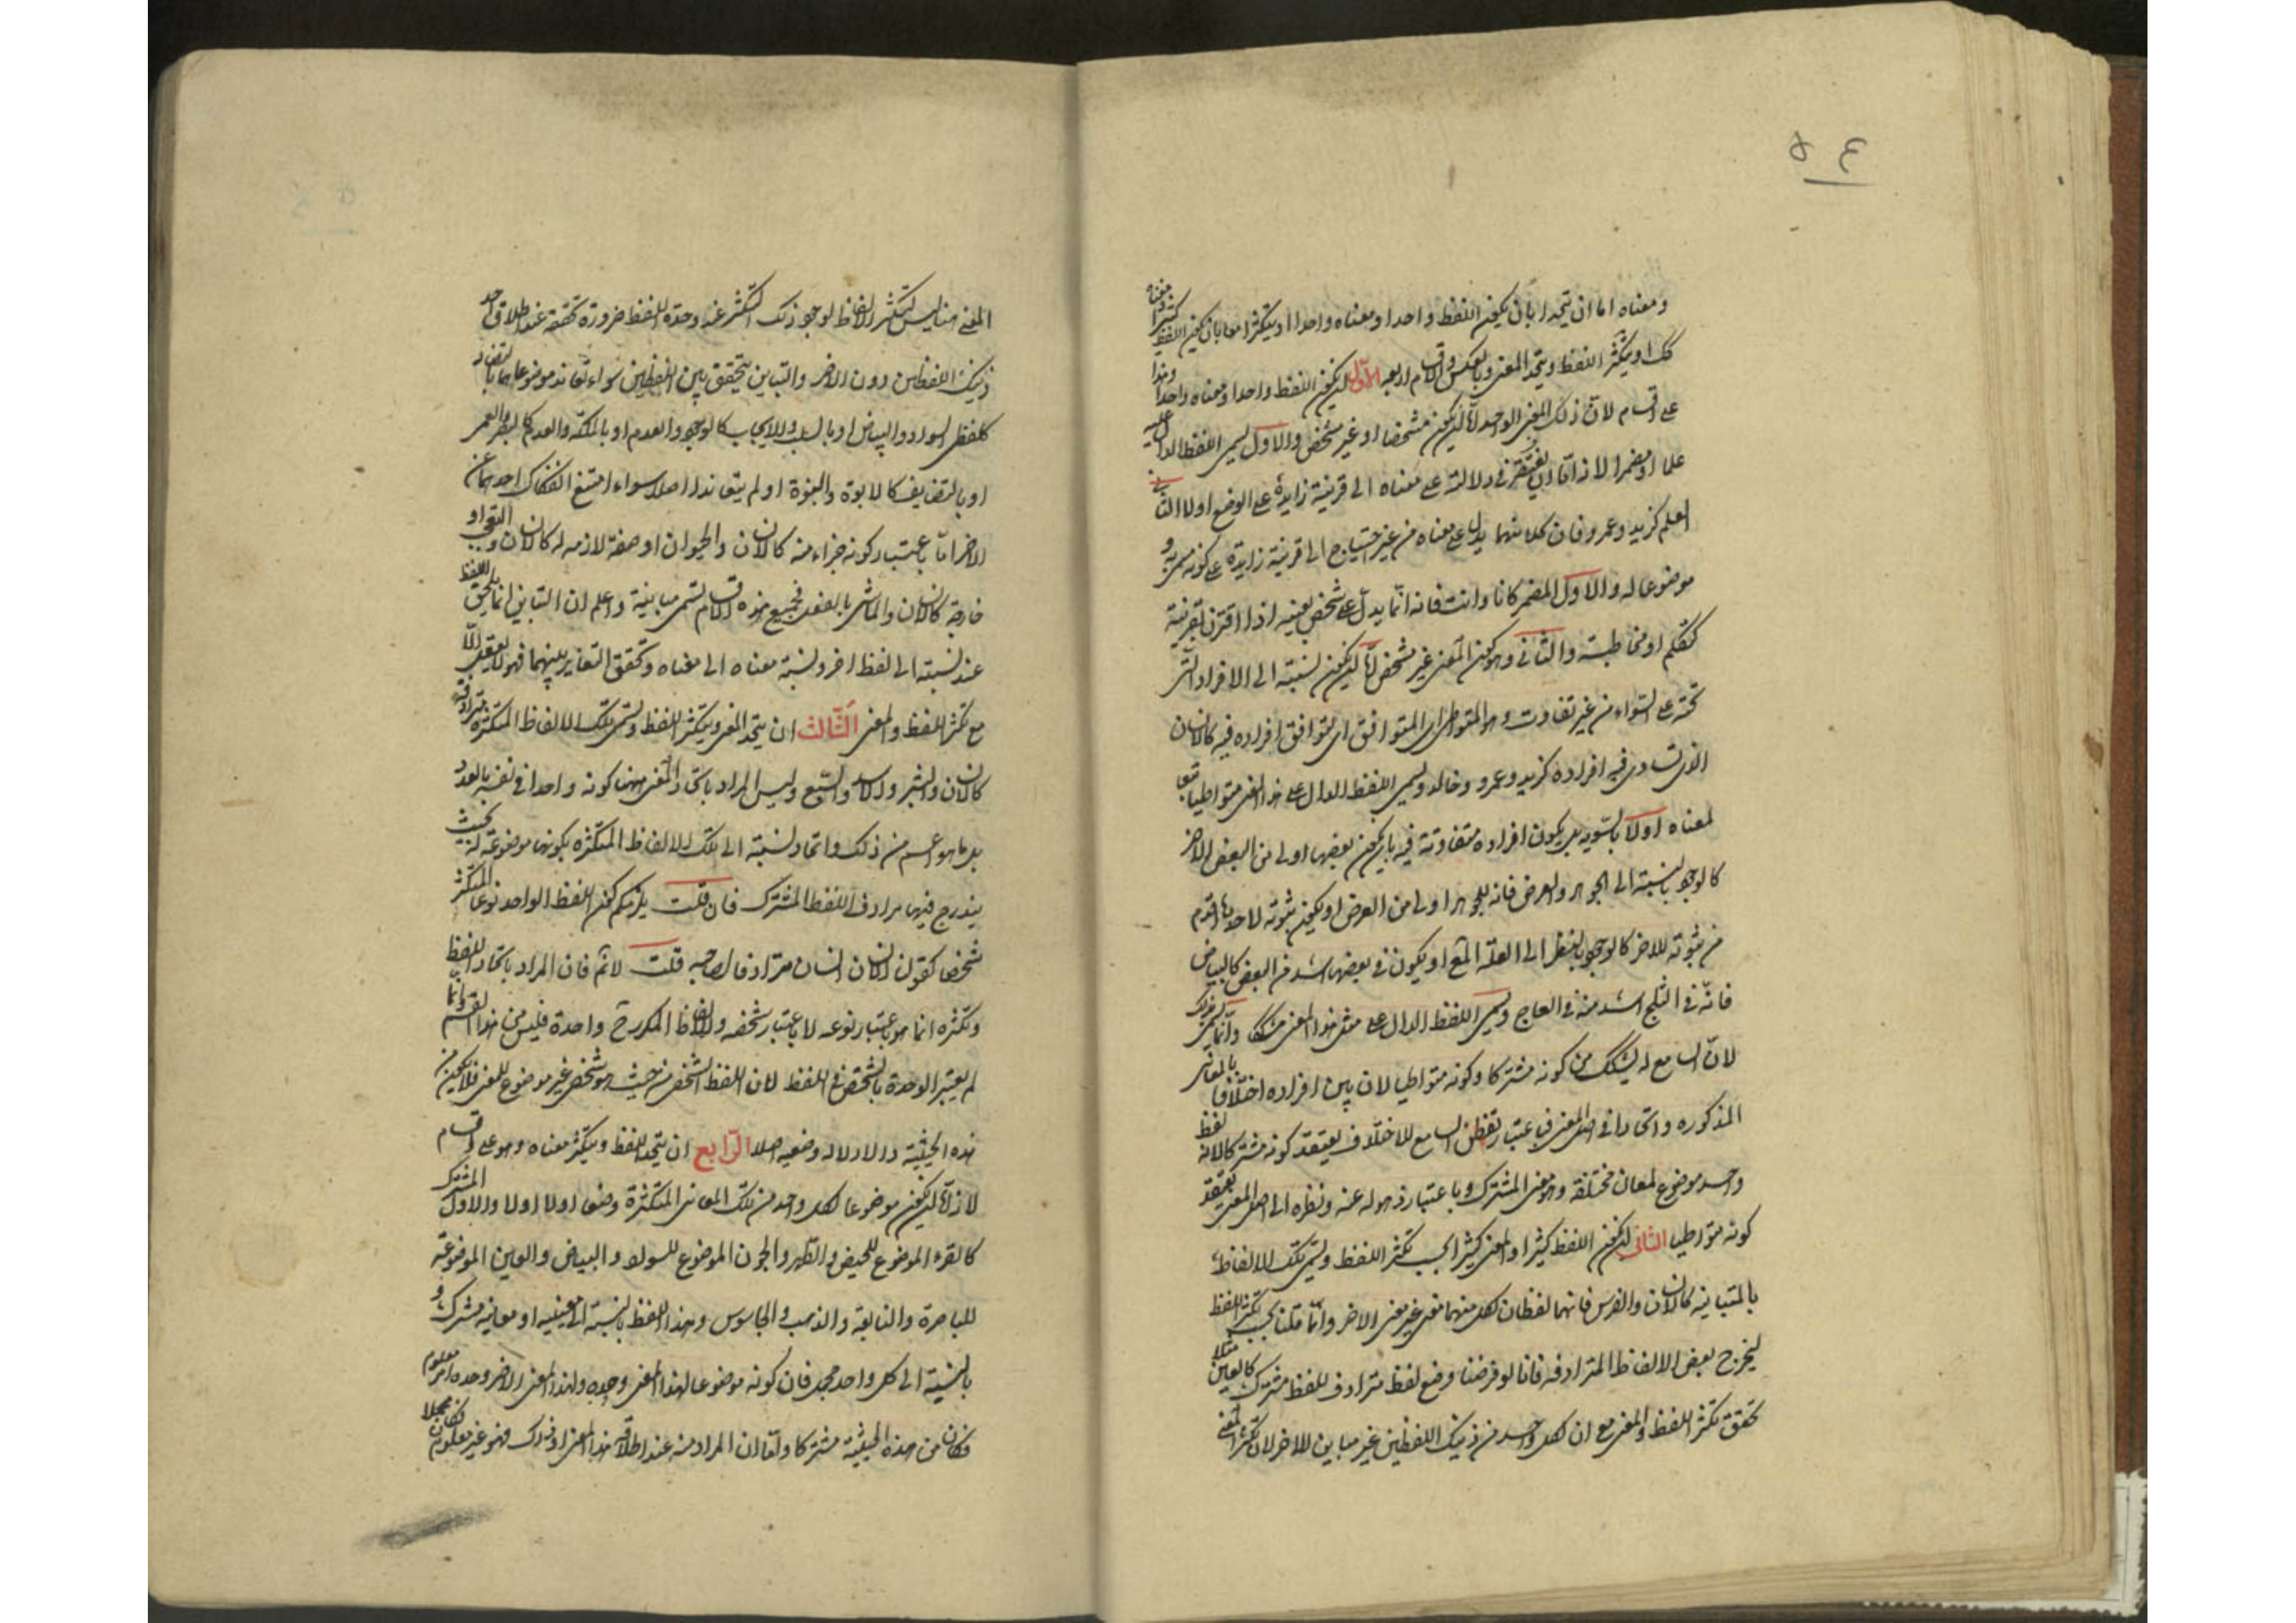 ٥٤
ومعناه اما ان يتحدا بان يكون اللفظ واحدا ومعناه واحدا او يتكثرا معا بان يكون اللفظ كثيرا ومعناه
كك او يتكثر اللفظ ويتحد المعنى وبالعكس والاقسام اربعه الاوّل ان يكون اللفظ واحدا ومعناه واحدا وهذا
على اقسام لانّ ذلك المعنى الواحد امّا ان يكون مشخصا او غير مشخص والاول يسمى اللفظ الدال عليه
علما او مضمرا لانه امّا ان يفتقر في دلالته على معناه الى قرينة زايدة على الوضع اولا الثانى
العلم كزيد وعمرو فان كلا منهما يدل على معناه من غير احتياج الى قرينة زايدة على كونه مسمى به و
موضوعا له والاول المضمر كانا وانت فانه انّما يدل على شخص بعينه اذا اقترن بقرينة
كتكلم او مخاطبة والثاني وهو كون المعنى غير مشخص امّا ان يكون نسبته الى الافراد الّتى
تحته على السّواء من غير تفاوت وهو المتواطى اى المتوافق اى يتوافق افراده فيه كالانسان
الذى تساوى فيه افراده كزيد وعمرو وخالد ويسمى اللفظ الدال على هذا المعنى متواطيا تبعا
لمعناه اولا بالسّويه بل يكون افراده متفاوتة فيه بان يكون بعضها اولى من البعض الاخر
كالوجود بالنسبة الى الجوهر والعرض فانه للجوهر اولى من العرض او يكون ثبوته لاحدها اقدم
من ثبوته للاخر كالوجود بالنظر الى العلة والمع او يكون في بعضها اشد من البعض كالبياض
فانّه في الثلج اشد منه في العاج ويسمى اللفظ الدال على مثل هذا المعنى مشككا وانّما سمى بذلك
لانّ السامع له يشكك من كونه مشتركا وكونه متواطيا لان بين افراده اختلافا بالمعانى
المذكوره واتحادا في اصل المعنى فباعتبار تفطن السامع للاختلاف يعتقد كونه مشتركا لانه لفظ
واحد موضوع لمعان مختلفه وهو معنى المشترك وباعتبار ذهوله عنه ونظره الى اصل المعنى يعتقد
كونه متواطيا الثانى ان يكون اللفظ كثيرا والمعنى كثيرا بحسب تكثر اللفظ ويسمى تلك الالفاظ
بالمتباينه كالانسان والفرس فانهما لفظان لكل منهما معنى غير معنى الاخر وانّما قلنا بحسب تكثر اللفظ
ليخرج بعض الالفاظ المترادفه فانا لو فرضنا وضع لفظ مترادف للفظ مشترك كالعين مثلا
تحقق تكثر اللفظ والمعنى مع ان لكل واحد من ذينك اللفظين غير مباين للاخر لان تكثر المعنى
المعنى هنا ليس لتكثر الالفاظ لوجود ذلك التكثر عند وحدة اللفظ ضرورة تحققه عند اطلاق احد
ذينك اللفظين دون الاخر والتباين يتحقق بين اللفظين سواء تعاند موضوعاهما بالتضاد
كلفظى السواد والبياض او بالسلب والايجاب كالوجود والعدم او بالملكة والعدم كالبصر والعمى
او بالتضايف كالابوة والبنوة او لم يتعاندا اصلا سواء امتنع انفكاك احدهما عن
الاخر امّا باعتبار كونه جزاء منه كالانسان والحيوان او صفة لازمه له كالانسان والتعجب او
خارجة كالانسان والماشى بالفعل فجميع هذه الاقسام تسمى مباينة واعلم ان التباين انما يلحق اللفظ
عند نسبته الى لفظ اخر ونسبة معناه الى معناه وتحقق التغاير بينهما فهو لا يعقل الّا
مع تكثر اللفظ والمعنى الثّالث ان يتحد المعنى ويتكثر اللفظ وتسمى تلك الالفاظ المتكثرة مترادفة
كالانسان والبشر والاسد والسّبع وليس المراد باتحاد المعنى ههنا كونه واحدا في نفسه بالعدد
بل ما هو اعم من ذلك واتحاد نسبته الى تلك الالفاظ المتكثره بكونها موضوعة له بحيث
يندرج فيها مرادف اللفظ المشترك فان قلت يلزمكم كون اللفظ الواحد نوعا المتكثر
شخصا كقولنا الانسان انسان مترادفا لصاحبه قلت لا نم فان المراد باتحاد اللفظ
وتكثره انما هو باعتبار نوعه لا باعتبار شخصه والالفاظ المكررة ح واحدة فليس من هذا القسم وانما
لم يعتبر الوحدة بالشخص في اللفظ لان اللفظ الشخصى من حيث هو شخصى غير موضوع للمعنى فلا يكون من
هذه الحيثية دالا دلاله وضعيه اصلا الرّابع ان يتحد اللفظ ويتكثر معناه وهو على اقسام
لانه امّا ان يكون موضوعا لكل واحد من تلك المعانى المتكثرة وضعا اولا اولا والاول المشترك
كالقرء الموضوع للحيض والطهر والجون الموضوع للسواد والبياض والعين الموضوعة
للباصرة والنابعة والذهب والجاسوس وهذا اللفظ بالنسبة الى معنييه او معانيه مشترك و
بالنسبة الى كل واحد مجمل فان كونه موضوعا لهذا المعنى وحده ولهذا المعنى الاخر وحده امر معلوم
فكان من هذه الحيثية مشتركا وامّا ان المراد منه عند اطلاقه هذا المعنى او ذلك فهو غير معلوم فكان مجملا